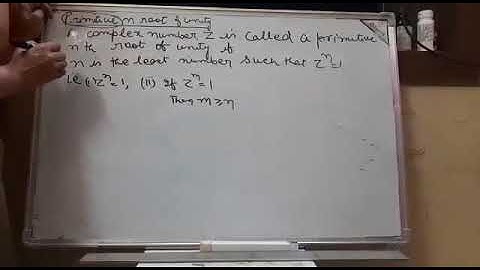 Primitive n root of unity
A complex number Z is called a primitive
nth root of unity if
n is the least number such that Zⁿ=1
ie (i) Zⁿ=1, (ii) if Zᵐ=1
Then m≥n